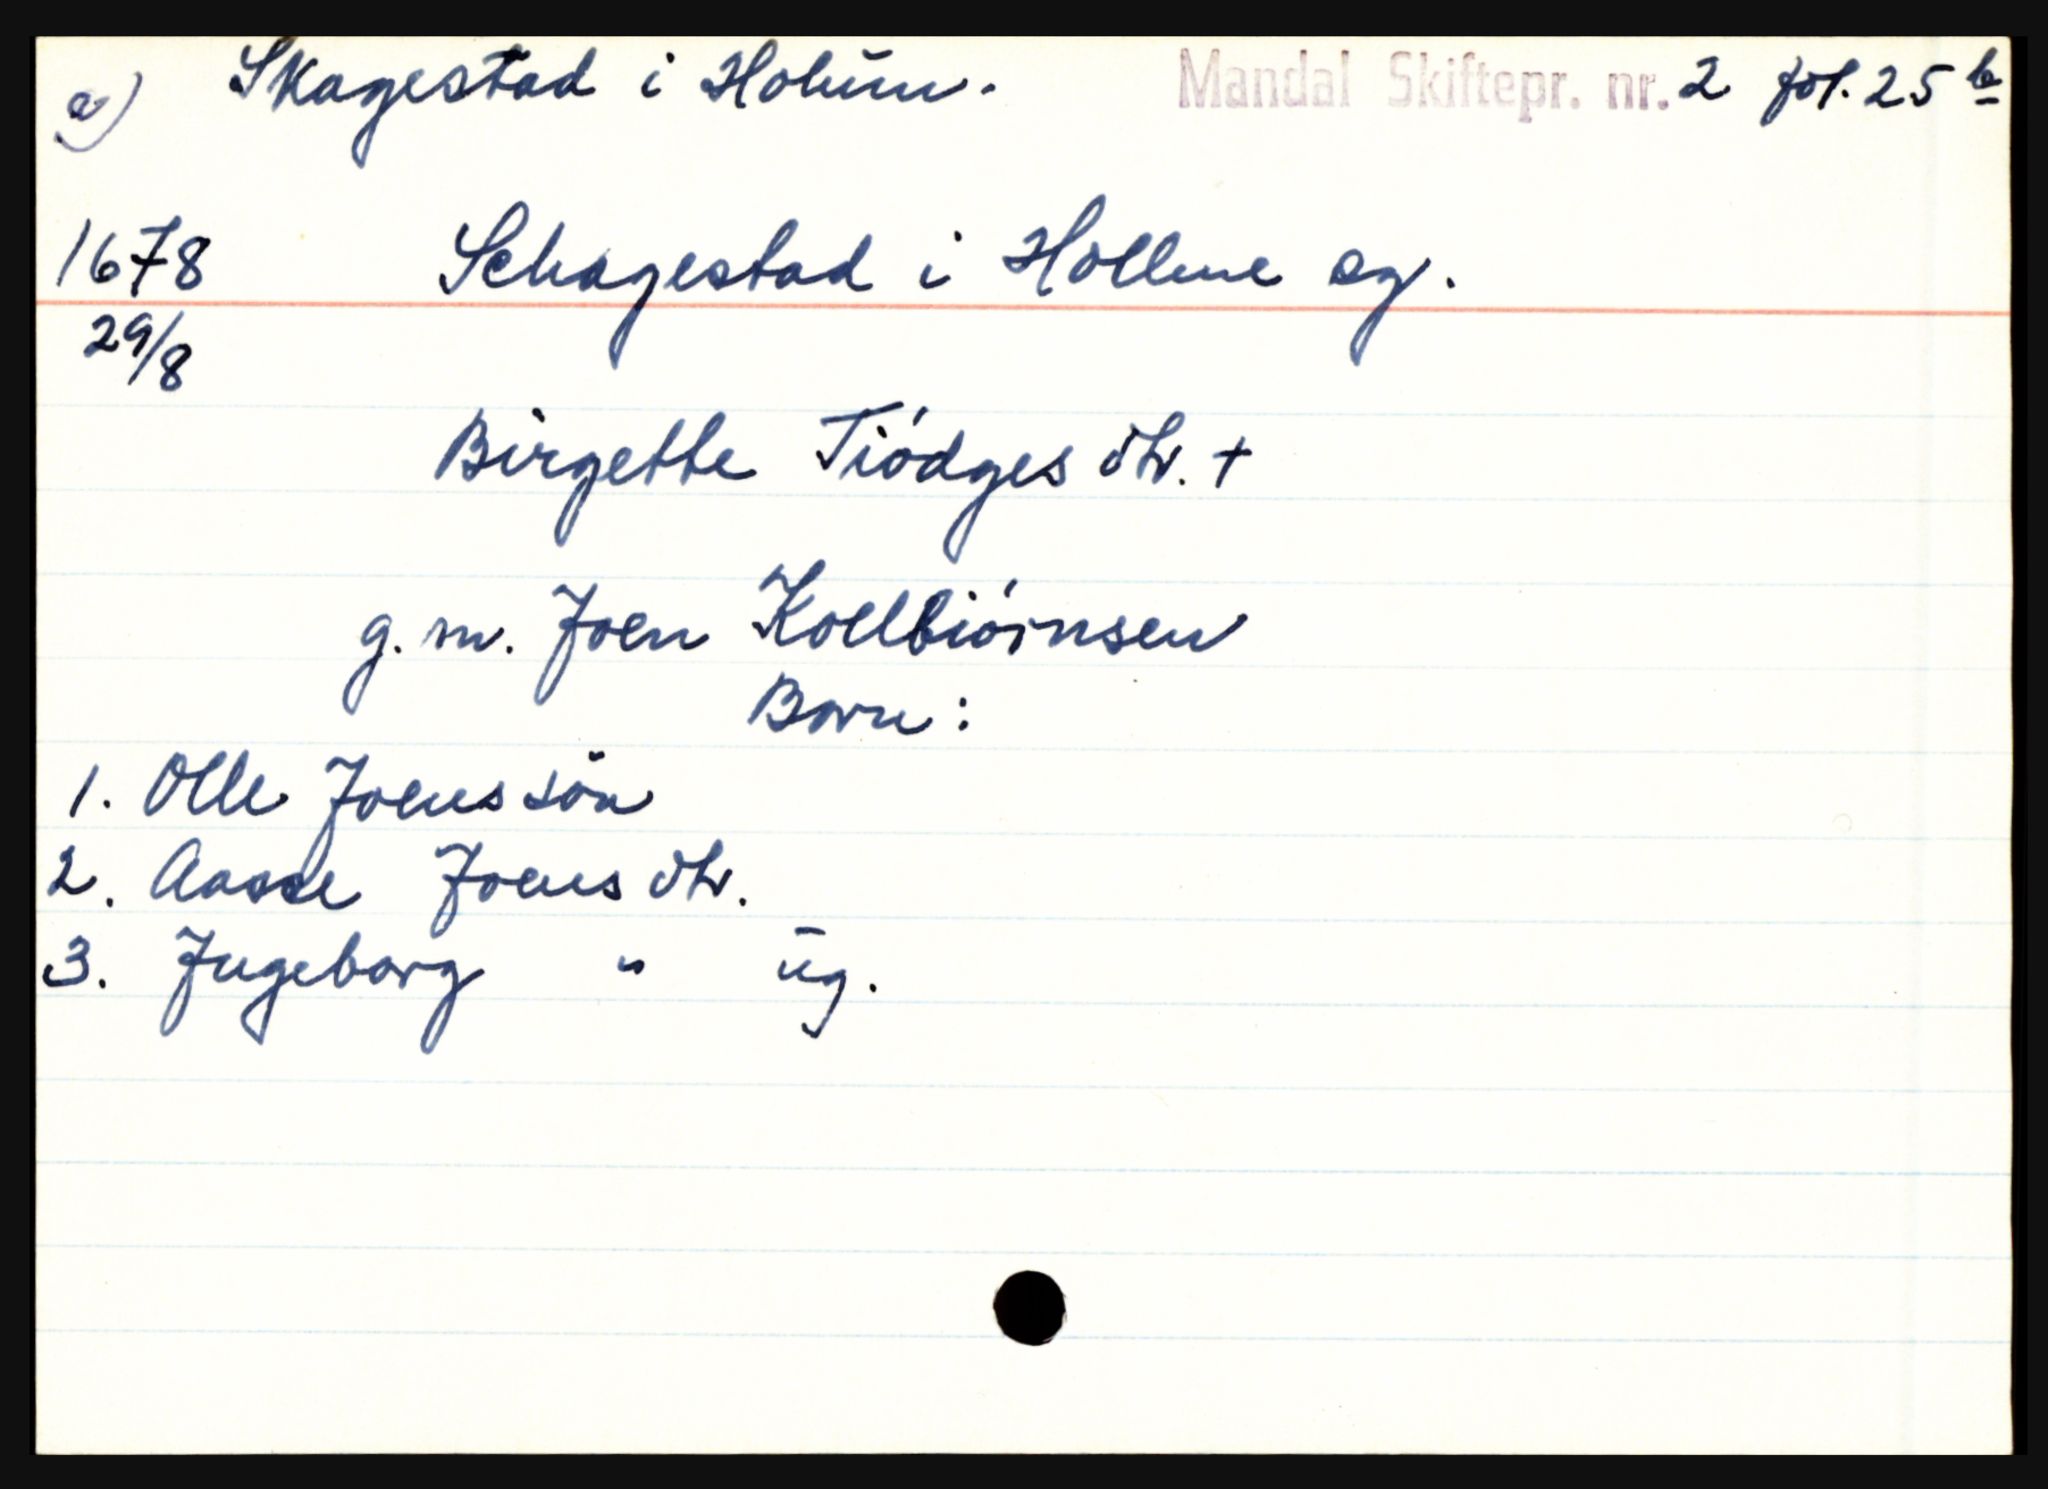 a) Skagestad i Holum. Mandal Skiftepr. nr. 2 fol. 25 b
1678 Schagestad i Hollme sg.
29/8
Birgette Tiódges dtr. +
g. m. Joen Kollbiórnsen
Born:
1. Olle Joenssön
2. Aasse Joensdtr.
3. Ingeborg " ug.